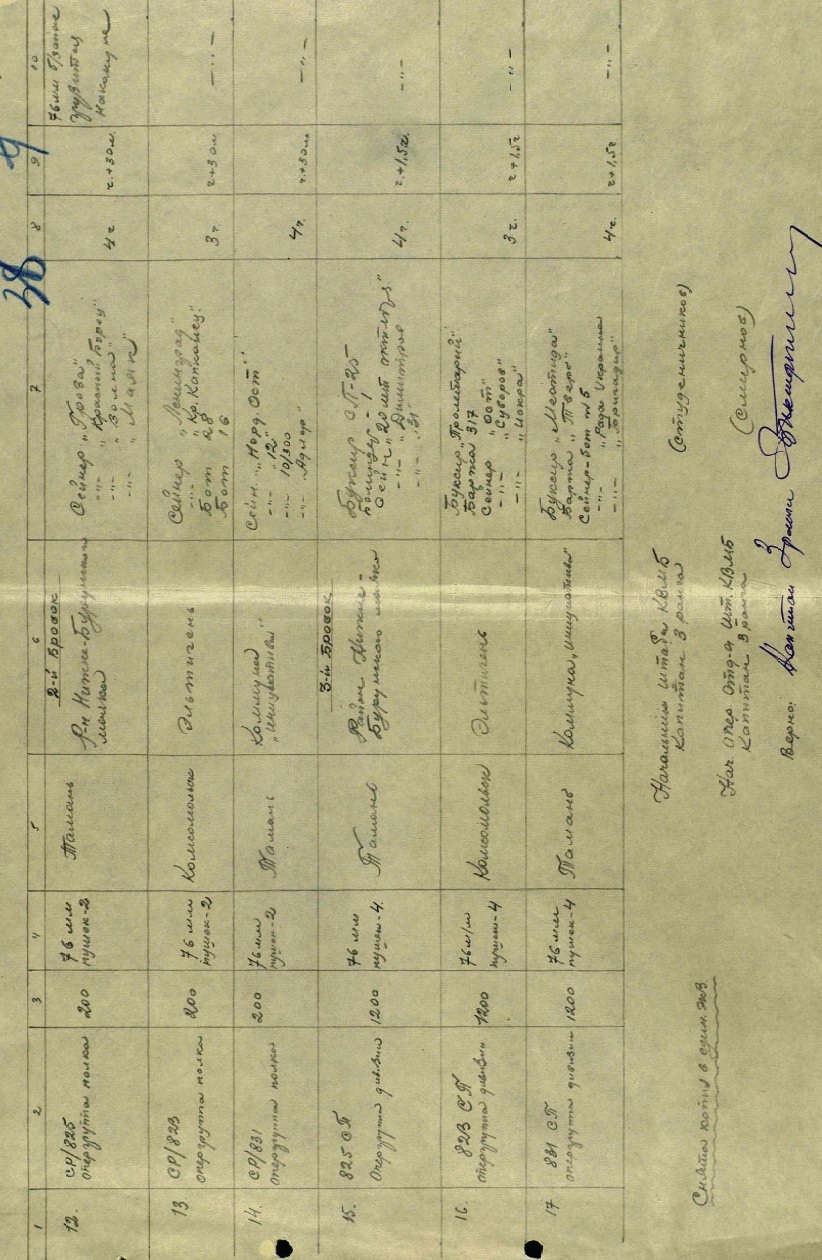 38
1 2 3 4 5 6 7 8 9 10
2-й Бросок
12. СР/825
опергруппа полка
200
76 мм
пушек-2
Тамань
Р-н Нижне-Бурунского
маяка
Сейнер „Гроза"
-"- „Красный Борец"
-"- „Волна"
-"- „Маяк"
4 г.
г.+30 м.
76 мм б/запас
грузится
накануне
13 СР/823
опергруппа полка
200
76 мм
пушек-2
Комсомольск
Эльтиген
Сейнер „Ленинград"
Бот 28
Бот 16
3 г.
г+30 м
-"-
14. СР/831
опергруппа полка
200
76 мм
пушек-2
Тамань
Коммуна
„инициатива"
Сейн. „Норд. Ост"
-"- „12"
-"- 10/300
-"- „Адлер"
4 г.
г.+30 м
-"-
3-й Бросок
15. 825 СП
Опергруппа дивизии
1200
76 мм
пушек-4.
Тамань
Район Нижне-
Бурунского маяка
Буксир СП-25
Болиндер - 1
Сейн. „20 лет октября"
-"- „Димитров"
4 г.
г.+1,5 г.
-"-
16. 823 СП
опергруппа дивизии
1200
76 м/м
пушек-4
Комсомольск
Эльтиген
Буксир „Пролетарий"
Баржа 317
Сейнер „Ост"
-"- „Суворов"
-"- „Иокра"
3 г.
г+1,5 г
-"-
17 831 СП
опергруппа дивизии
1200
76 мм
пушек-4
Тамань
Коммуна „инициатива"
Буксир „Меотида"
Баржа „Тверь"
Сейнер-бот №5
-"- „Рада Украина"
-"- „Бригадир"
4 г.
г+1,5 г
-"-
Начальник штаба КВМБ
Капитан 3 ранга
(Студеничников)
Нач. Опер. Отд-я Шт. КВМБ
Капитан 3 ранга
(Смирнов)
Верно: Капитан 3 ранга
Снята копия в един. экз